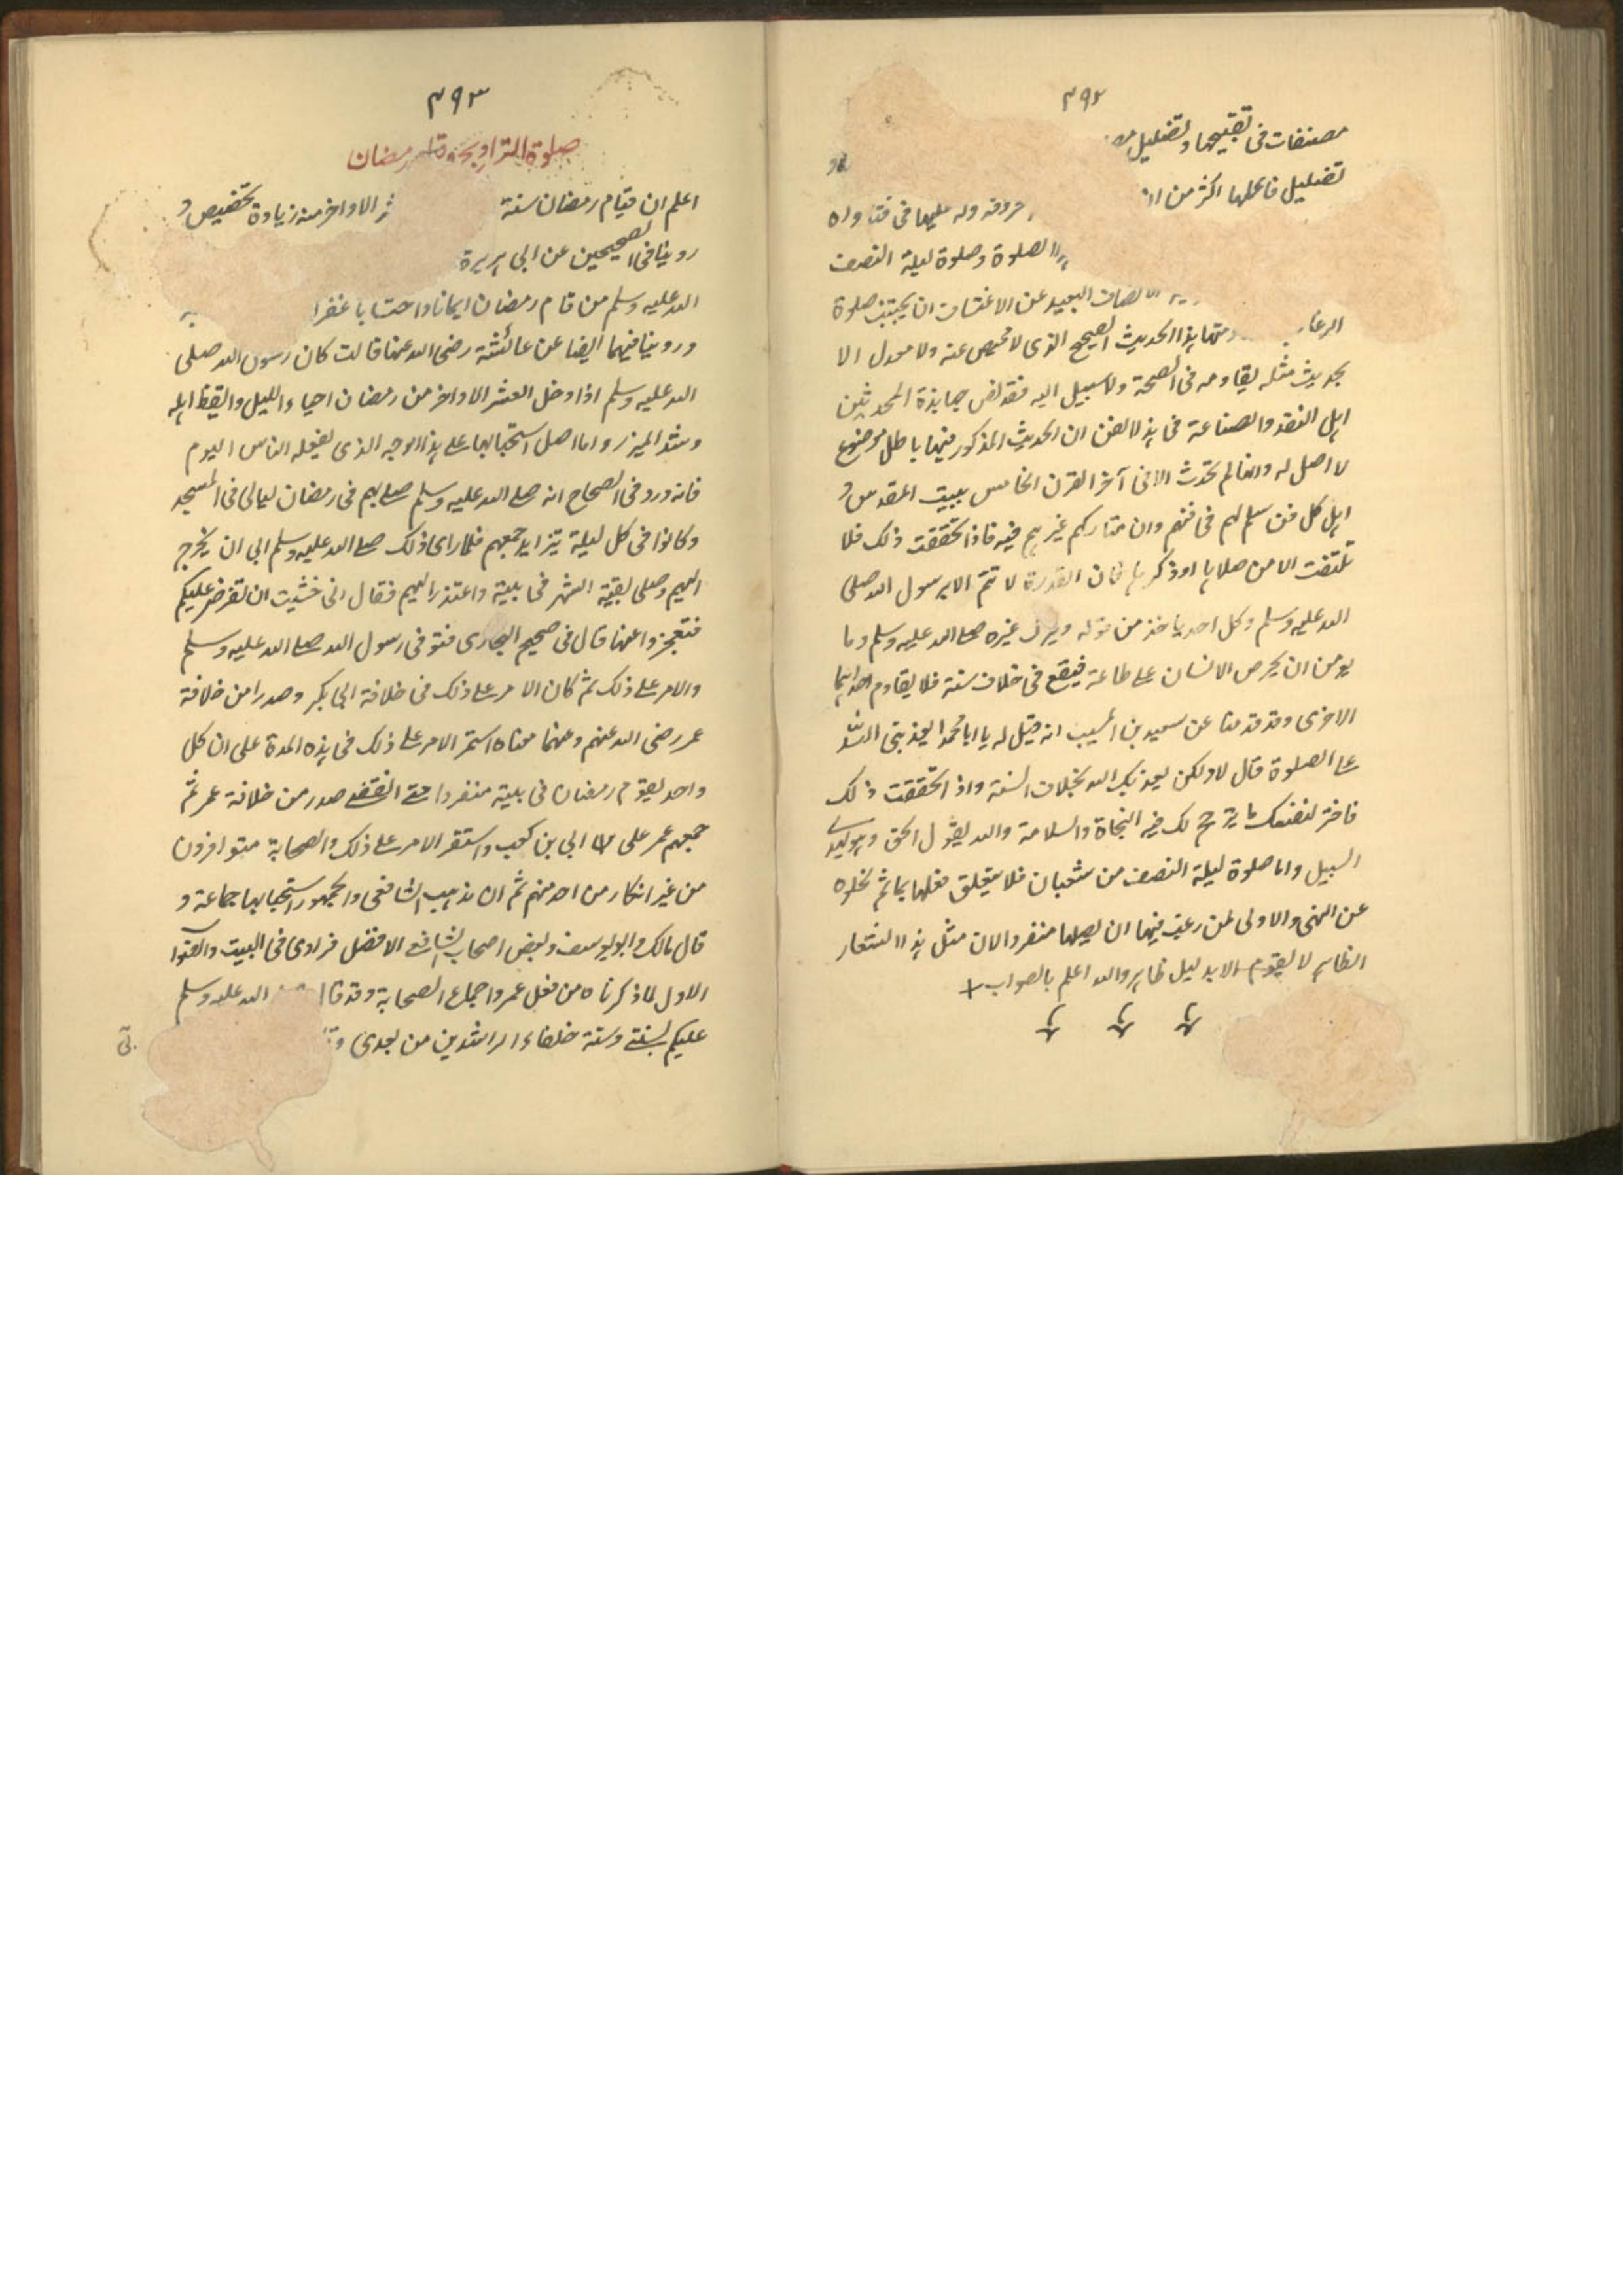 ٣٩٢
مصنفات فى تقبيحها وتضليل
تضليل فاعلها اكثر من ان
حروفه وله عليها فى فتاواه
الصلوة وصلوة ليلة النصف
الانصاف البعيد عن الاعتساف ان يجتنب صلوة
الرغا هذا الحديث الصحيح الذى لا محيص عنه ولا معدل الا
بحديث مثله يقاومه فى الصحة ولا سبيل اليه فقد نص جهابذة المحدثين
اهل النقد والصناعة فى هذا الفن ان الحديث المذكور فيها باطل موضوع
لا اصل له وانها لم تحدث الا فى آخر القرن الخامس ببيت المقدس و
اهل كل فن سلم لهم فى فنهم وان شاركهم غيرهم فيه فاذا تحققت ذلك فلا
تلتفت الا من صلاها او ذكرها فان القدرة لا تتم الا برسول الله صلى
الله عليه وسلم وكل احد ياخذ من قوله ويترك غيره صلى الله عليه وسلم وما
يومن ان يحرص الانسان على طاعة فيقع فى خلاف سنة فلا يقاوم احدهما
الاخرى وقد قدمنا عن سعيد بن المسيب انه قيل له يا ابا محمد ايعذبنى الله
على الصلوة قال لا ولكن يعذبك الله بخلاف السنة واذا تحققت ذلك
فاختر لنفسك ما يترجح لك فيه النجاة والسلامة والله يقول الحق وهو يهدى
السبيل واما صلوة ليلة النصف من شعبان فلا يتعلق فعلها بماثم لخلوه
عن النهى والاولى لمن رغب فيها ان يصليها منفردا لان مثل هذا الشعار
الظاهر لا يقوم الا بدليل ظاهر والله اعلم بالصواب
٣٩٣
صلوة التراويح رمضان
اعلم ان قيام رمضان سنة الاواخر منه زيادة تخصيص و
روينا فى الصحيحين عن ابى هريرة
الله عليه وسلم من قام رمضان ايمانا واحتسابا غفر
وروينا فيهما ايضا عن عائشة رضى الله عنها قالت كان رسول الله صلى
الله عليه وسلم اذا دخل العشر الاواخر من رمضان احياء الليل وايقظ اهله
وشد الميزر واما اصل استحبابها على هذا الوجه الذى يفعله الناس اليوم
فانه ورد فى الصحاح انه صلى الله عليه وسلم صلى بهم فى رمضان ليالى فى المسجد
وكانوا فى كل ليلة يتزايد جمعهم فلما راى ذلك صلى الله عليه وسلم ابى ان يخرج
اليهم وصلى بقية الشهر فى بيته واعتذر اليهم فقال انى خشيت ان تفرض عليكم
فتعجزوا عنها قال فى صحيح البخارى فتوفى رسول الله صلى الله عليه وسلم
والامر على ذلك ثم كان الامر على ذلك فى خلافة ابى بكر وصدرا من خلافة
عمر رضى الله عنهم وعنهما معناه استمر الامر على ذلك فى هذه المدة على ان كل
واحد يقوم رمضان فى بيته منفردا حتى انقضى صدر من خلافة عمر ثم
جمعهم عمر على ابى بن كعب واستقر الامر على ذلك والصحابة متوافرون
من غير انكار من احد منهم ثم ان مذهب الشافعى والجمهور استحبابها جماعة و
قال مالك وابو يوسف وبعض اصحاب الشافعى الافضل فرادى فى البيت والصواب
الاول لما ذكرناه من فعل عمر واجماع الصحابة وقد قال الله عليه وسلم
عليكم بسنتى وسنة خلفاء الراشدين من بعدى